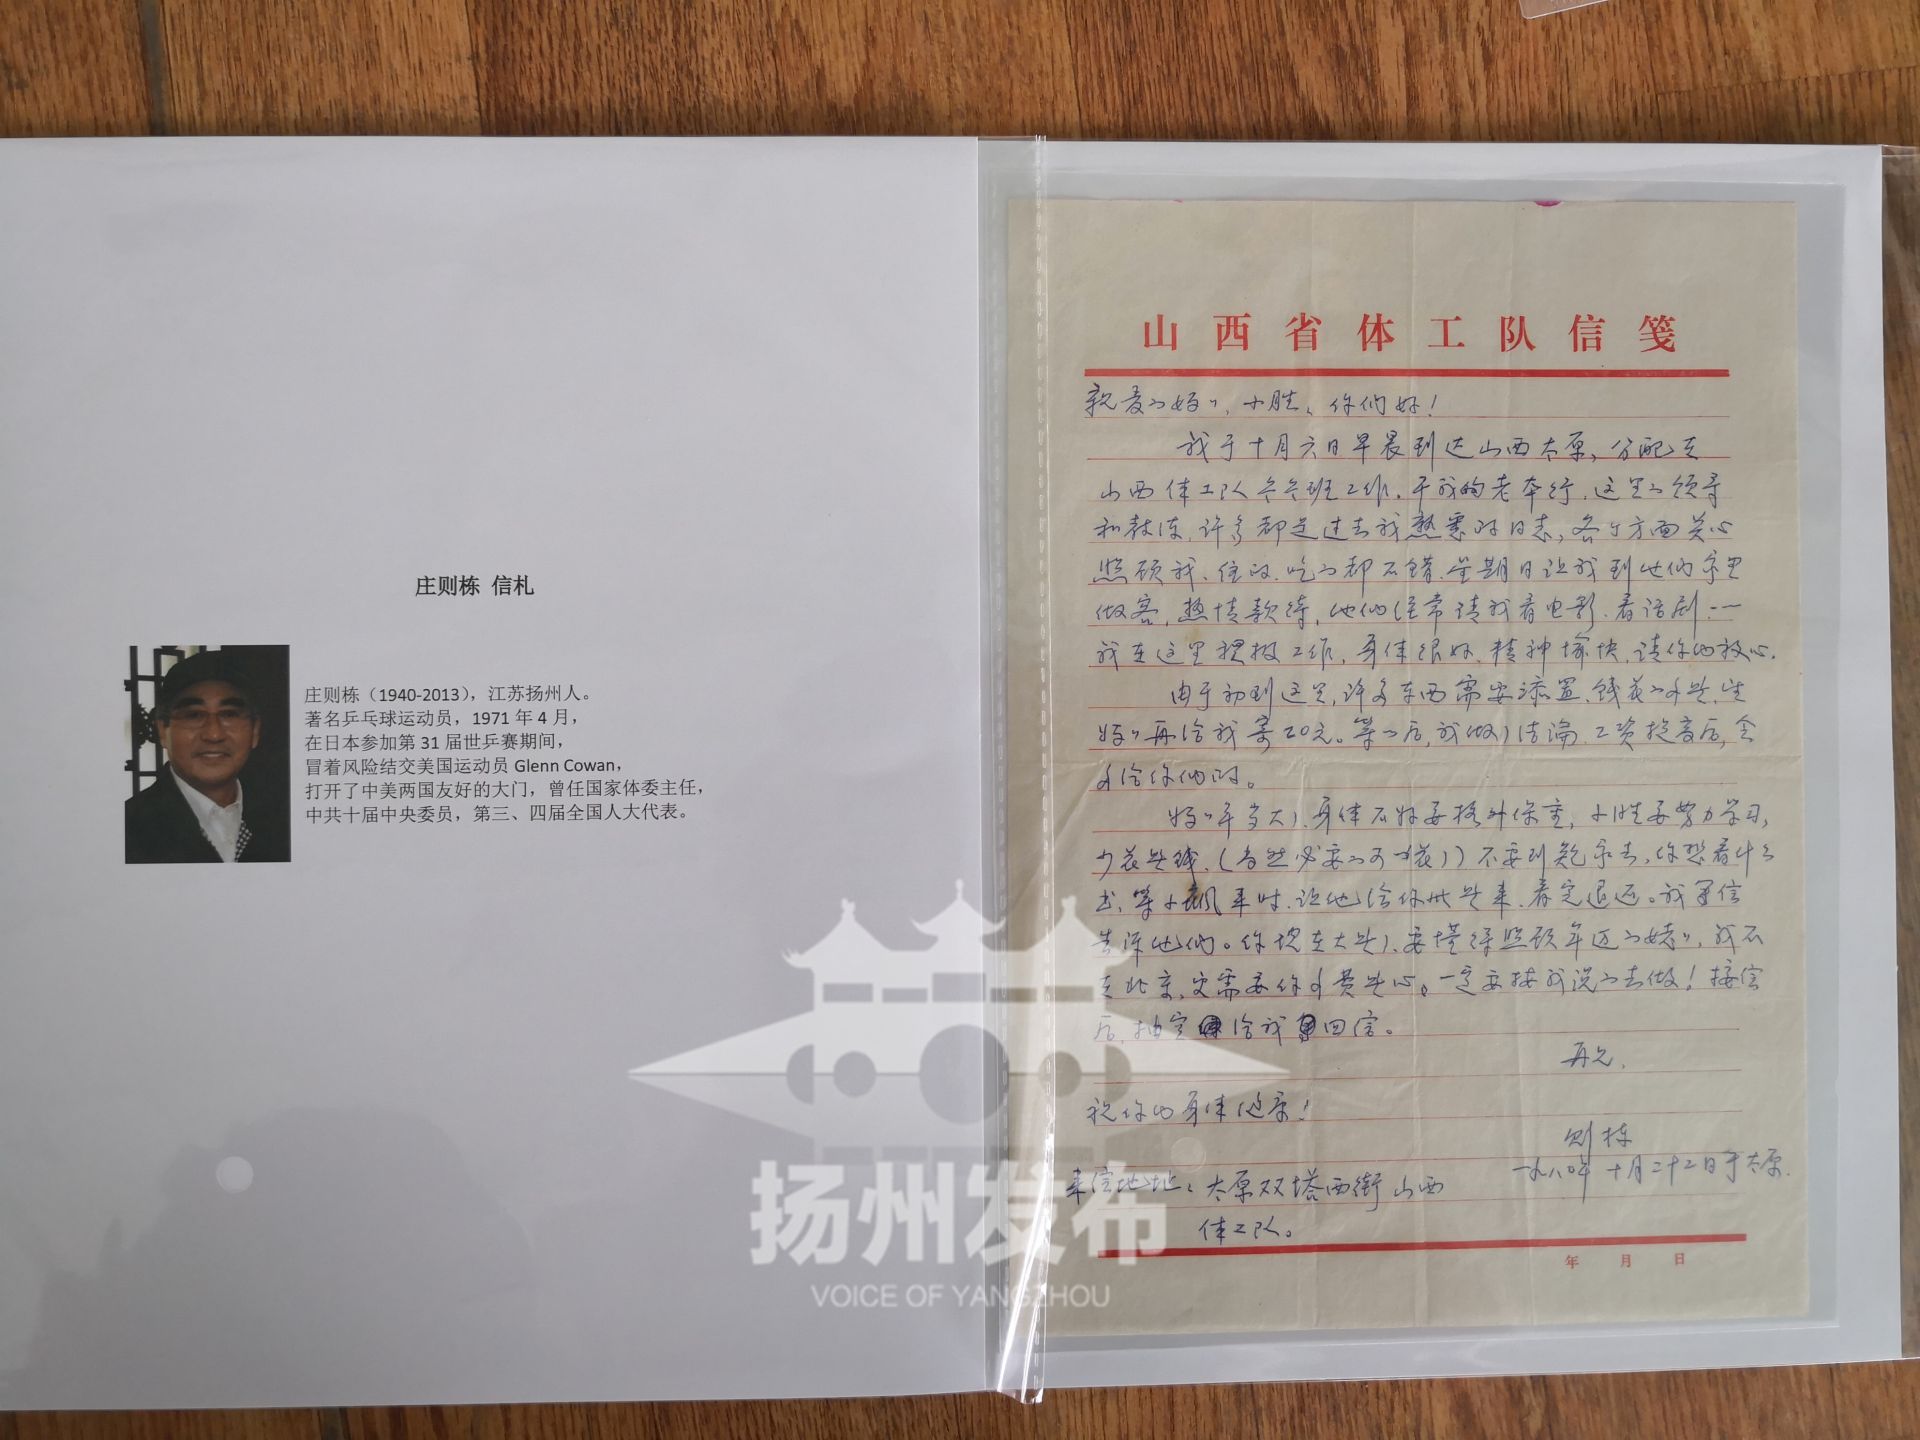 庄则栋 信札
庄则栋（1940-2013），江苏扬州人。
著名乒乓球运动员，1971 年 4 月，
在日本参加第 31 届世乒赛期间，
冒着风险结交美国运动员 Glenn Cowan，
打开了中美两国友好的大门，曾任国家体委主任，
中共十届中央委员，第三、四届全国人大代表。
山西省体工队信笺
亲爱的妈〃，小胜，你们好！
我于十月六日早晨到达山西太原，分配在
山西体工队乒乓班工作，干我的老本行，这里的领导
和教练，许多都是过去我熟悉的同志，各个方面关心
照顾我，住的，吃的都不错，星期日让我到他们家里
做客，热情款待，他们经常请我看电影，看话剧……
我在这里积极工作，身体很好，精神愉快，请你们放心。
由于初到这里，许多东西需要添置，钱花的多些，望
妈〃再给我寄20元。等以后，我做了结论，工资提高后，会
多给你们的。
妈〃年岁大了，身体不好要格外保重，小胜要努力学习，
少花些钱，（当然必要的可以花）不要到处去，你想看什么
书，等小飙来时，让他给你些来，看完退还。我写信
告诉他们。你现在大些了，要懂得照顾年迈的姥〃，我不
在北京，更需要你多费些心。一定要按我说的去做！接信
后，抽空给我回信。
再见，
祝你们身体健康！
则栋
一九八〇年十月二十二日于太原
来信地址：太原双塔西街山西
体工队。
年 月 日
扬州发布
VOICE OF YANGZHOU